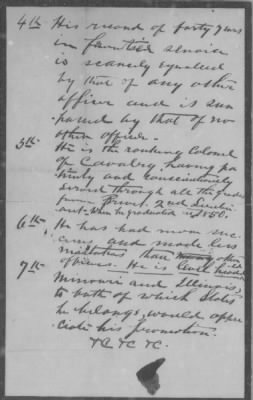 4th His record of forty years
in frontier service
is scarcely equaled
by that of any other
officer and is sur-
passed by that of no
other officer.
5th He is the ranking Colonel
of Cavalry, having pa-
tiently and conscientiously
served through all the grades
from Brevet 2nd Lieuten-
ant. When he graduated in 1850.
6th He has had more suc-
cess and made less
mistakes than many other
officers. He is level headed
7th Missouri and Illinois,
to both of which States
he belongs, would appre-
ciate his promotion.